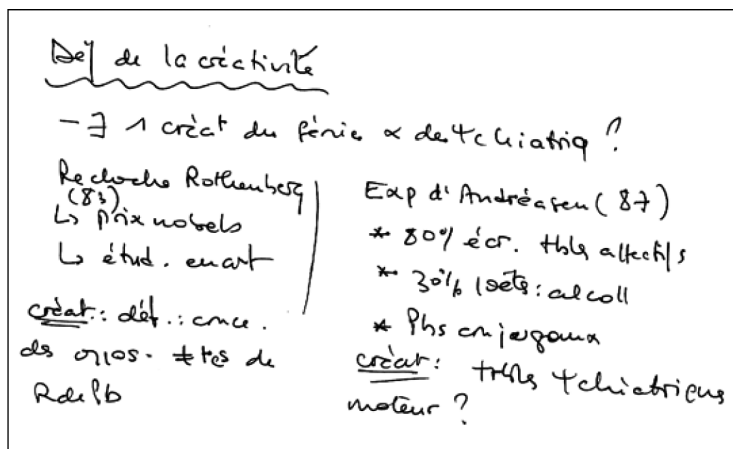 Déf de la créativité
- ∃ 1 créat du génie ∝ de ψchiatriq ?
Recherche Rothenberg
(83)
↳ prix nobels
↳ étud. en art
créat : déf. : conce.
des oppos. ≠tes de
R de Pb
Exp d'Andréasen (87)
* 80% écr. tbles affectifs
* 30% : alcoll
* Pbs conjugaux
créat : tbles ψchiatriques
moteur ?